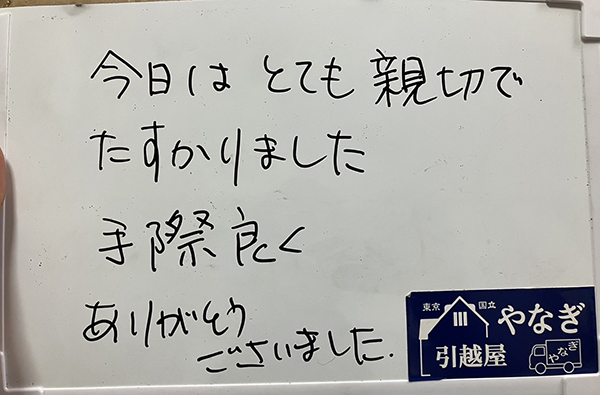 今日は とても 親切で
たすかりました
手際良く
ありがとう
ございました.
東京 国立 やなぎ
引越屋 やなぎ